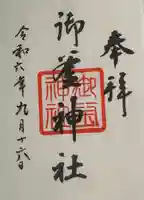 奉拝
御釜神社
令和六年九月十六日